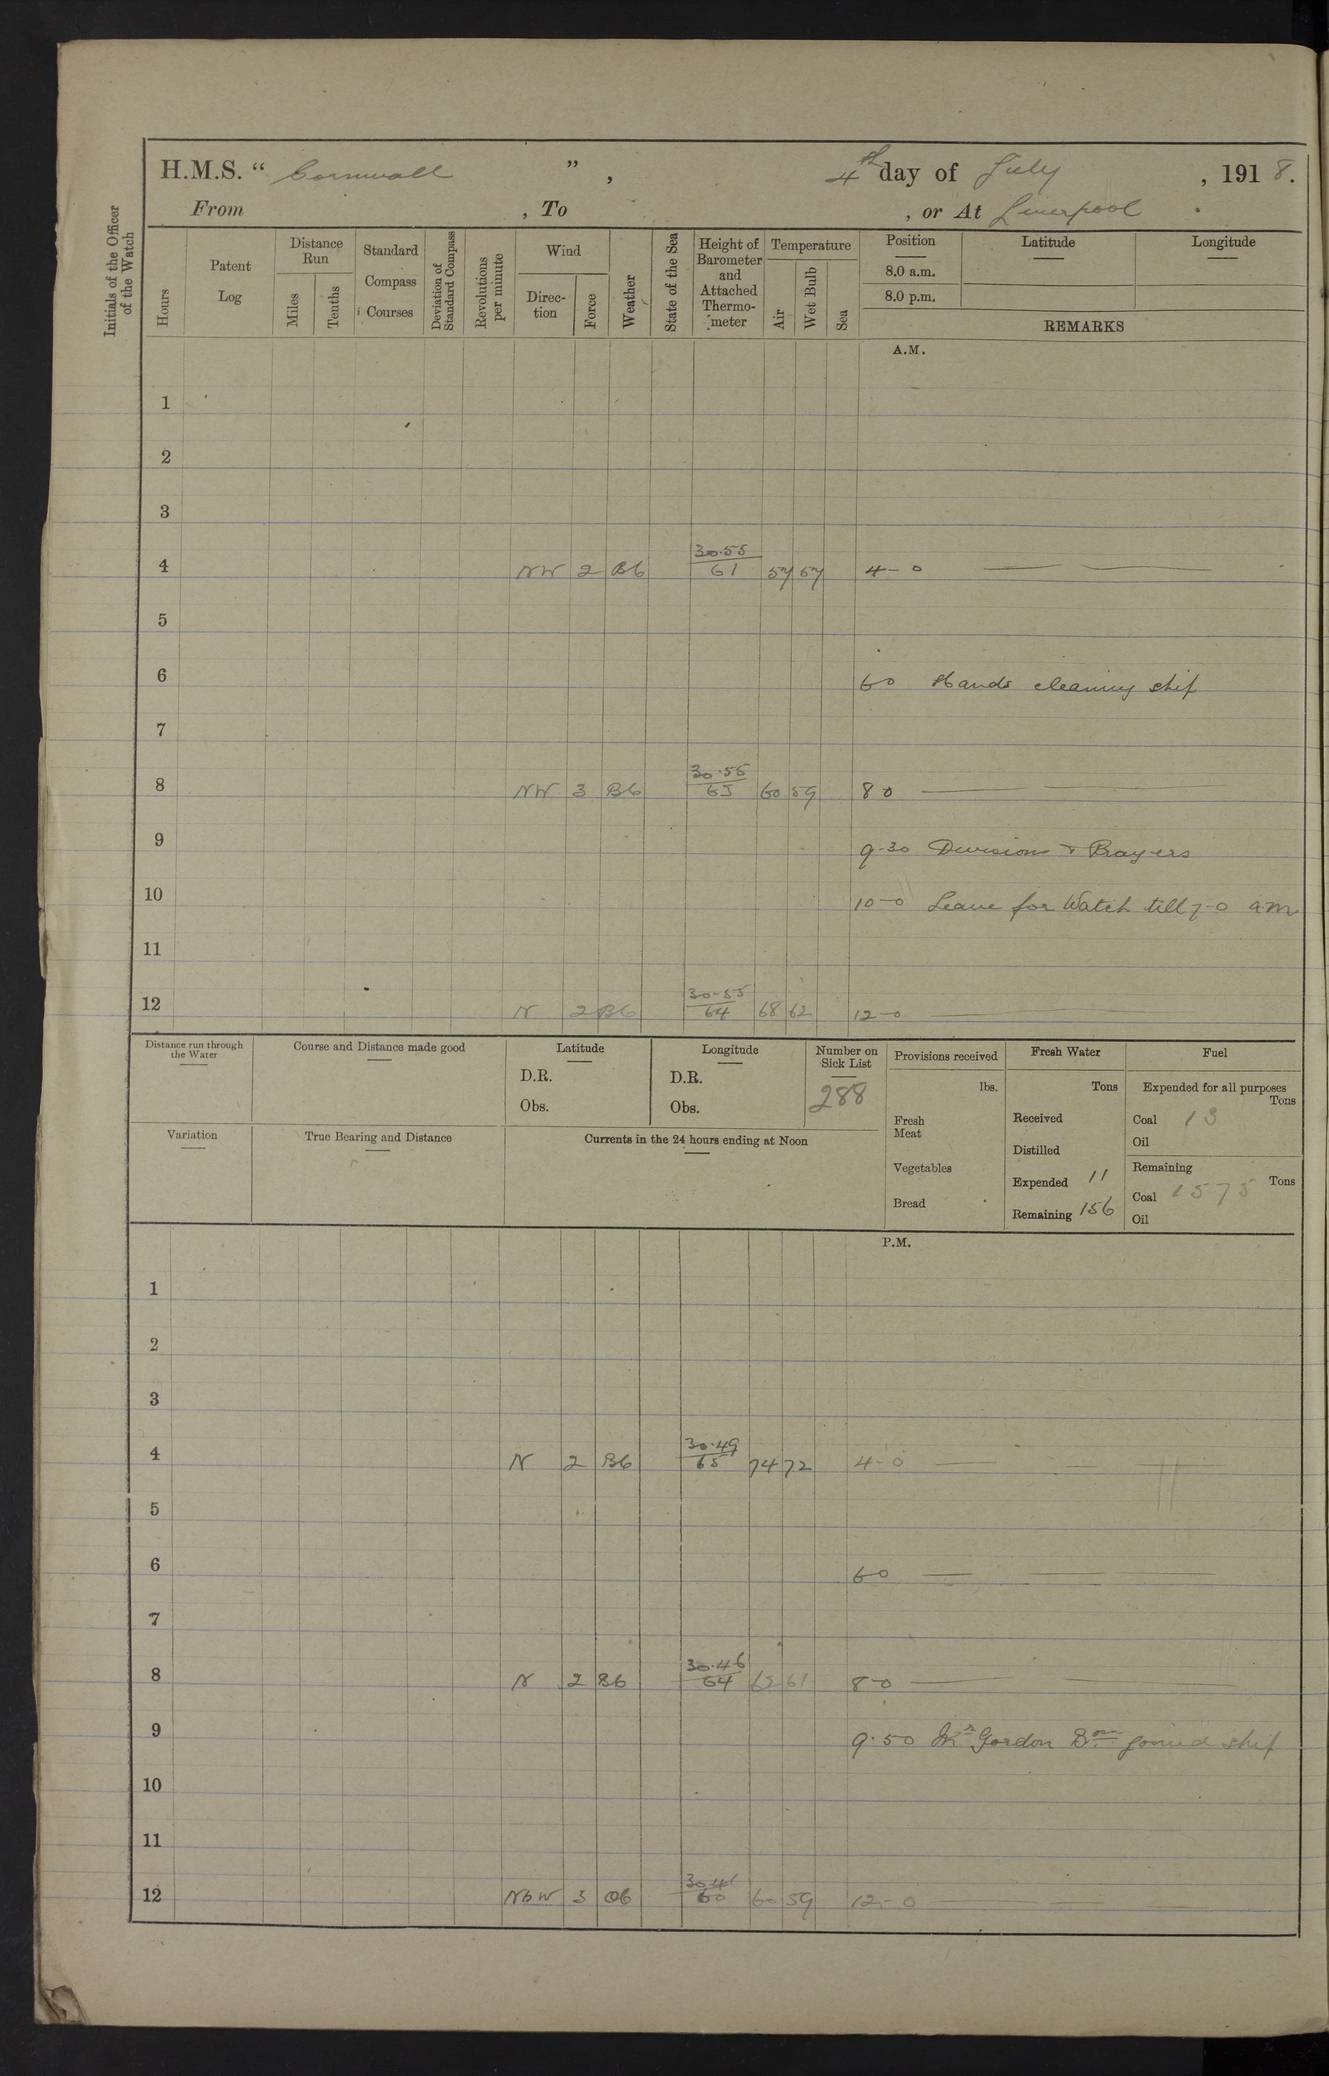 H.M.S. “ Cornwall ”, 4th day of July, 1918.
From , To , or At Liverpool.
Initials of the Officer of the Watch
Hours
Patent Log
Distance Run
Miles
Tenths
Standard Compass Courses
Deviation of Standard Compass
Revolutions per minute
Wind
Direc-tion
Force
Weather
State of the Sea
Height of Barometer and Attached Thermo-meter
Temperature
Air
Wet Bulb
Sea
Position
8.0 a.m.
8.0 p.m.
Latitude
Longitude
REMARKS
A.M.
1
2
3
4 NW 2 Bb 30.55 61 57 57 4-0
5
6 6 0 Hands cleaning ship
7
8 NW 3 Bb 30.55 63 60 59 8 0
9 9.30 Divisions & Prayers
10 10-0 Leave for Watch till 7-0 a.m
11
12 N 2 Bb 30.55 64 68 62 12-0
Distance run through the Water
Course and Distance made good
Latitude
D.R.
Obs.
Longitude
D.R.
Obs.
Number on Sick List
288
Provisions received
lbs.
Fresh Meat
Vegetables
Bread
Fresh Water
Tons
Received
Distilled
Expended 11
Remaining 156
Fuel
Expended for all purposes
Tons
Coal 13
Oil
Remaining
Tons
Coal 1575
Oil
Variation
True Bearing and Distance
Currents in the 24 hours ending at Noon
P.M.
1
2
3
4 N 2 Bb 30.49 65 74 72 4-0
5
6 6 0
7
8 N 2 Bb 30.46 64 62 61 8-0
9 9.50 Mr Gordon Bosn joined ship
10
11
12 NbW 3 Ob 60 60 59 12-0